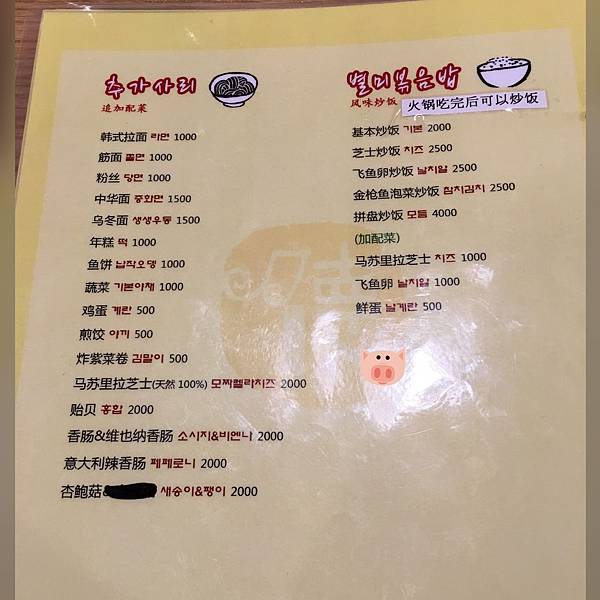 추가사리
追加配菜
韩式拉面 라면 1000
筋面 쫄면 1000
粉丝 당면 1000
中华面 중화면 1500
乌冬面 생생우동 1500
年糕 떡 1000
鱼饼 납작오뎅 1000
蔬菜 기본야채 1000
鸡蛋 계란 500
煎饺 야끼 500
炸紫菜卷 김말이 500
马苏里拉芝士(天然 100%) 모짜렐라치즈 2000
贻贝 홍합 2000
香肠&维也纳香肠 소시지&비엔나 2000
意大利辣香肠 페페로니 2000
杏鲍菇 새송이&팽이 2000
별미볶음밥
风味炒饭 火锅吃完后可以炒饭
基本炒饭 기본 2000
芝士炒饭 치즈 2500
飞鱼卵炒饭 날치알 2500
金枪鱼泡菜炒饭 참치김치 2500
拼盘炒饭 모듬 4000
(加配菜)
马苏里拉芝士 치즈 1000
飞鱼卵 날치알 1000
鲜蛋 날계란 500